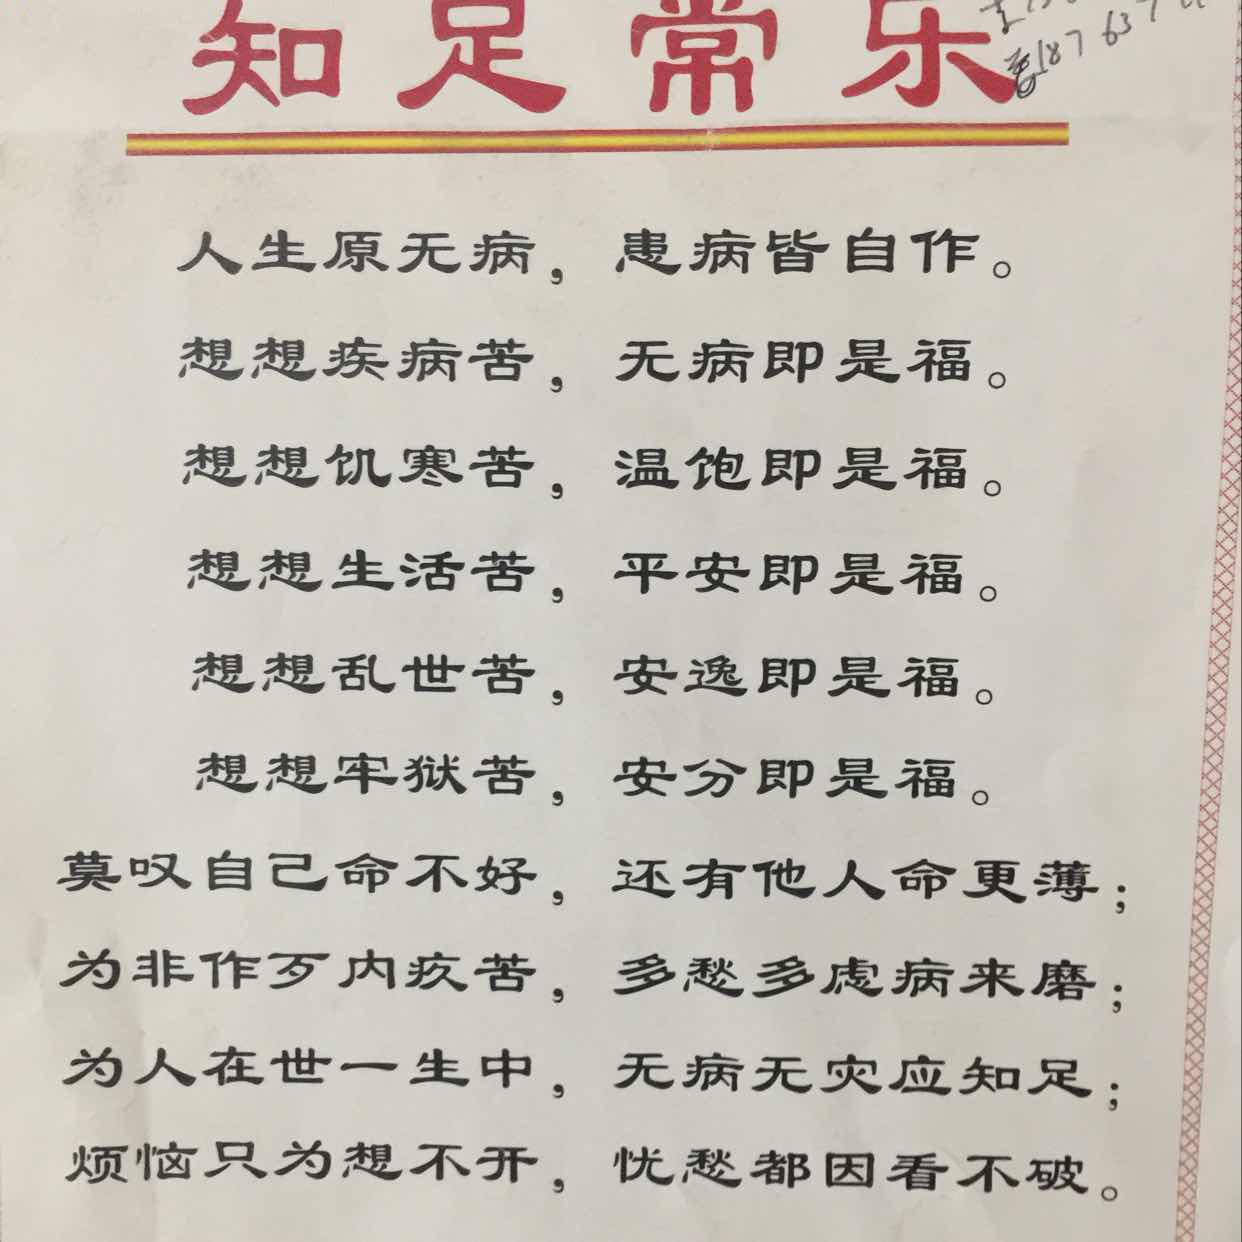 知足常乐
187 637
人生原无病，患病皆自作。
想想疾病苦，无病即是福。
想想饥寒苦，温饱即是福。
想想生活苦，平安即是福。
想想乱世苦，安逸即是福。
想想牢狱苦，安分即是福。
莫叹自己命不好，还有他人命更薄；
为非作歹内疚苦，多愁多虑病来磨；
为人在世一生中，无病无灾应知足；
烦恼只为想不开，忧愁都因看不破。